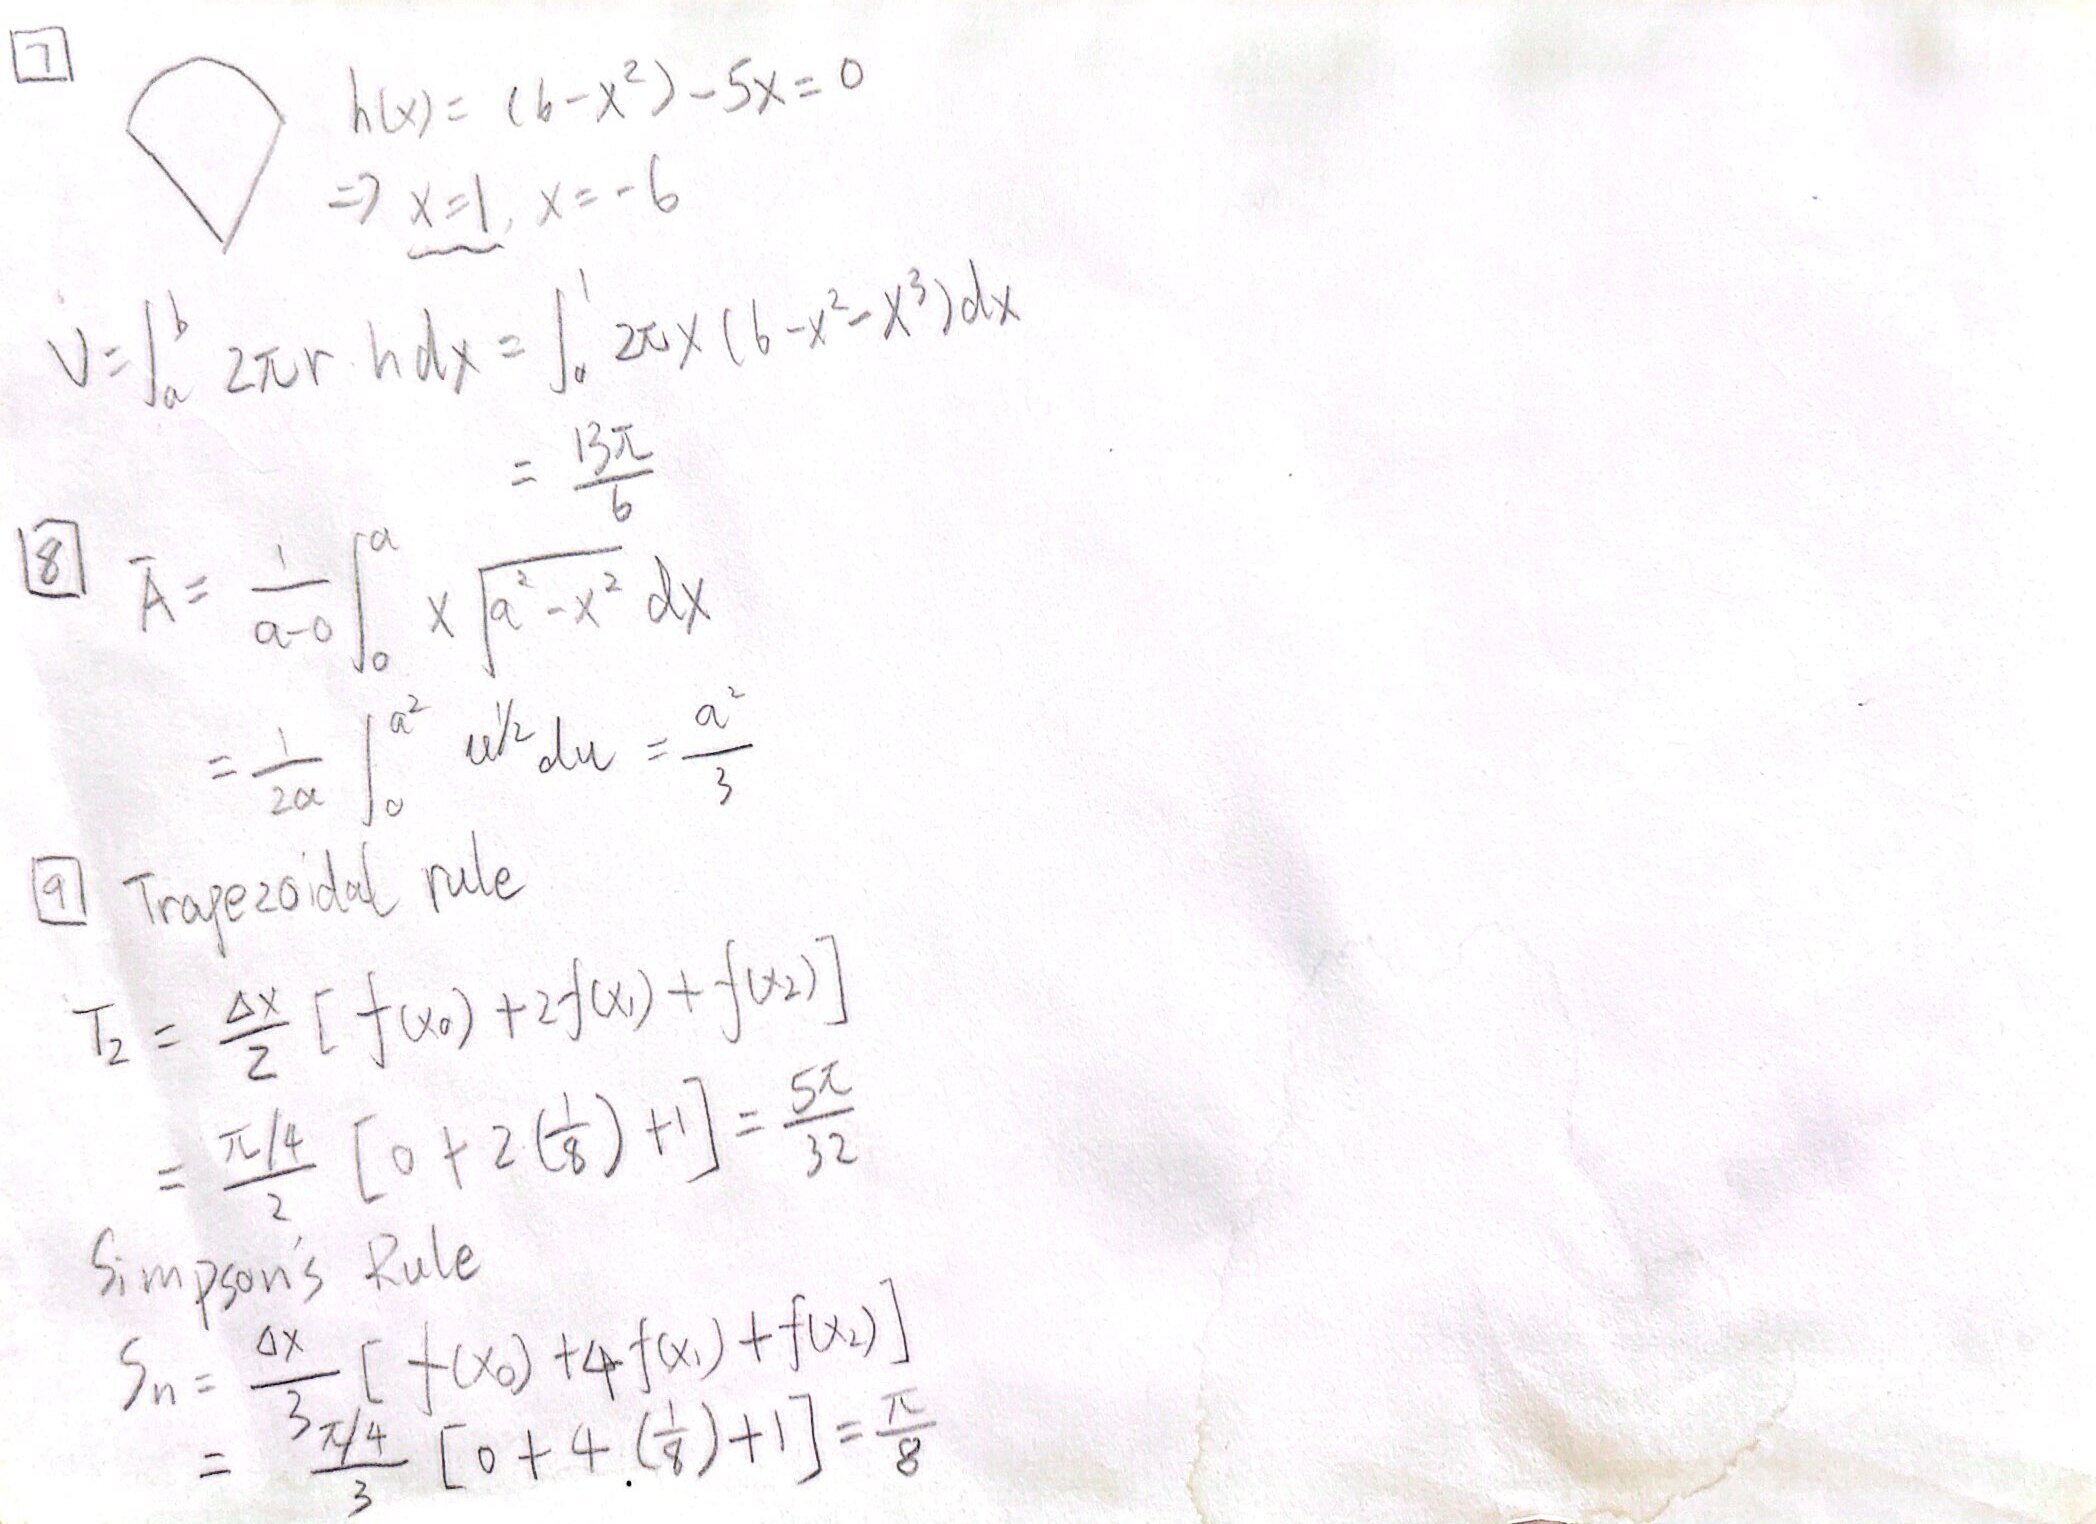 7
h(x) = (6-x²)-5x=0
⇒ x=1, x=-6
V=∫ₐᵇ 2πr·h dx = ∫₀¹ 2πx(6-x²-x³)dx
= 13π/6
8 Ā = 1/(a-0) ∫₀ᵃ x√(a²-x²) dx
= 1/(2a) ∫₀^(a²) u^(1/2) du = a²/3
9 Trapezoidal rule
T₂ = Δx/2 [f(x₀)+2f(x₁)+f(x₂)]
= (π/4)/2 [0+2(1/8)+1] = 5π/32
Simpson's Rule
Sn = Δx/3 [f(x₀)+4f(x₁)+f(x₂)]
= (π/4)/3 [0+4·(1/8)+1] = π/8